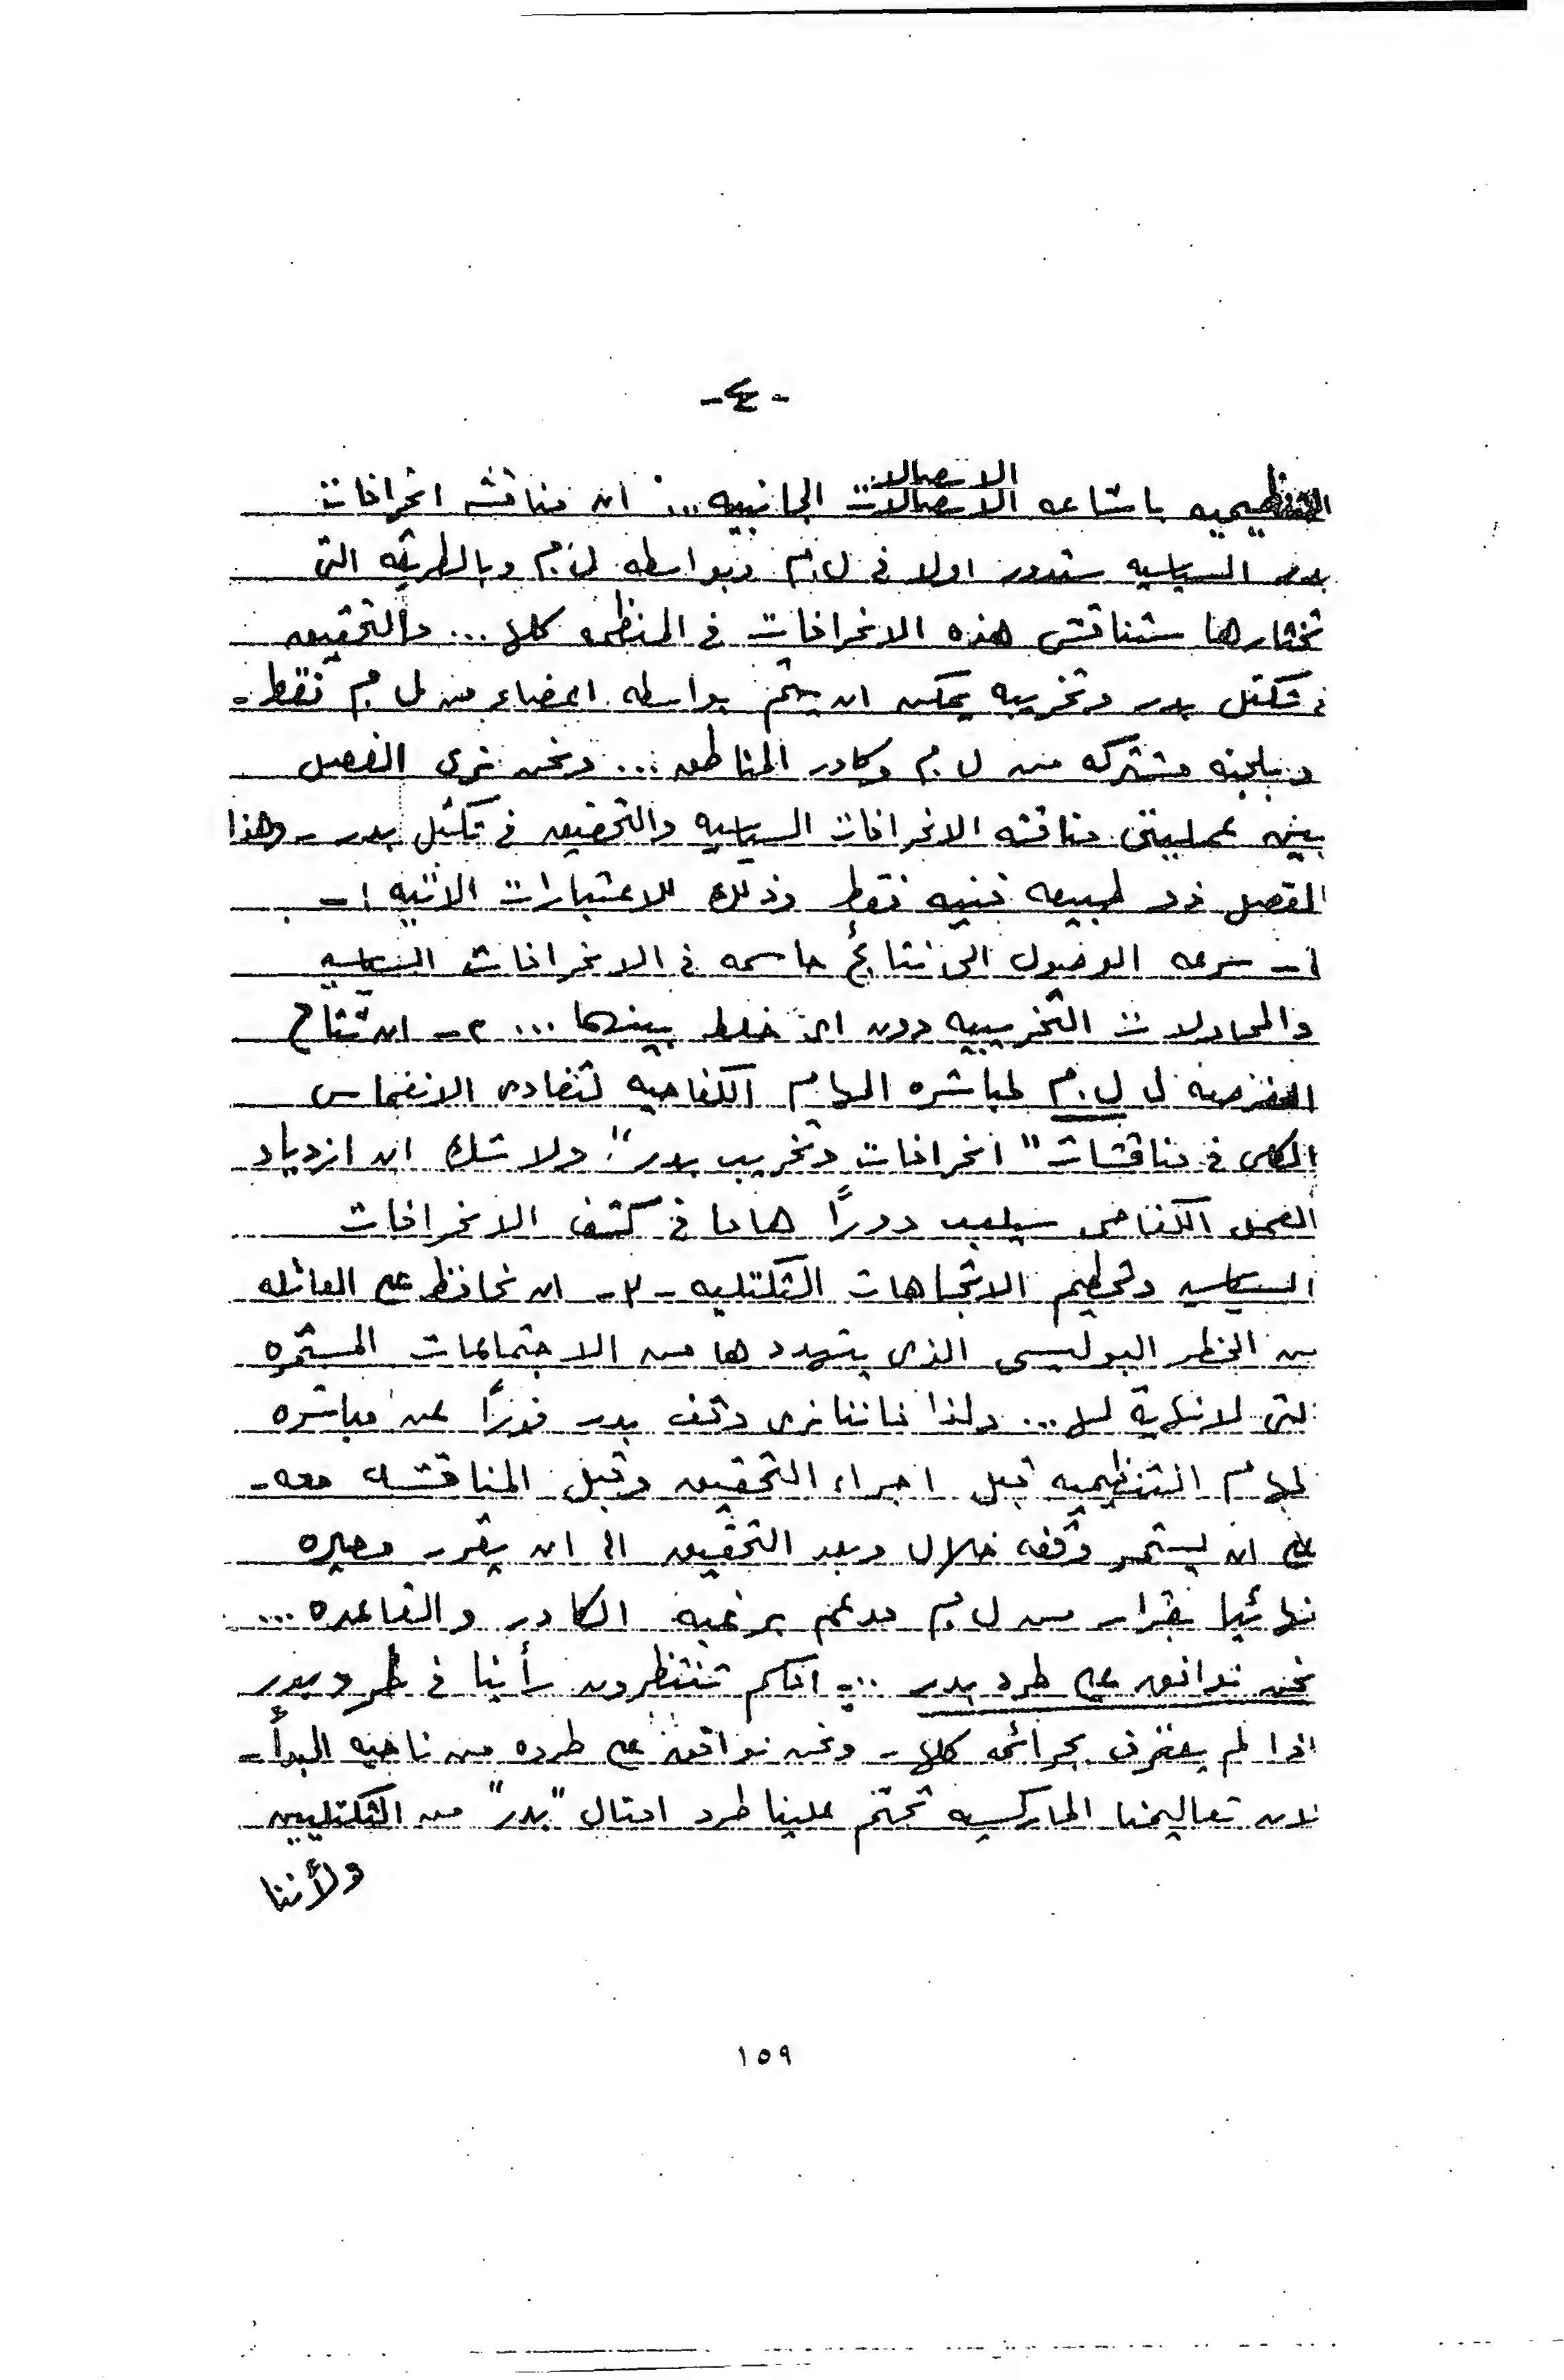 -٤-
الاتصالات
التنظيميه باشاعه الاتصالات الجانبيه... ان مناقشه انحرافات
بدر السياسيه ستدور اولا فى ل.م وبواسطه ل.م وبالطريقه التى
تختارها ستناقش هذه الانحرافات فى المنظمه كلها... والتحقيق
فى تكتل بدر وتخريبه يمكن ان يتم بواسطه اعضاء من ل م فقط -
وبلجنه مشتركه من ل.م وكادر المناطق... ونحن نرى الفصل
بين عمليتى مناقشه الانحرافات السياسيه والتحقيق فى تكتل بدر - وهذا
الفصل ذو طبيعه فنيه فقط وذلك للاعتبارات الاتيه :-
١- سرعه الوصول الى نتائج حاسمه فى الانحرافات السياسيه
والمحاولات التخريبيه دون اى خلط بينهما... ٢- ان تتاح
الفرصه ل ل.م لمباشره المهام الكفاحيه لتفادى الانغماس
الكلى فى مناقشات "انحرافات وتخريب بدر". ولا شك ان ازدياد
العمل الكفاحى سيلعب دوراً هاما فى كشف الانحرافات
السياسيه وتحطيم الاتجاهات التكتليه - ٣- ان نحافظ على العائله
من الخطر البوليسى الذى يتهددها من الاجتماعات المستمره
التى لا نهاية لها... ولذا فاننا نرى وقف بدر فوراً عن مباشره
المهام التنظيميه قبل اجراء التحقيق وقبل المناقشه معه -
على ان يستمر وقفه خلال وبعد التحقيق الى ان يقرر مصيره
نهائيا بقرار من ل م مدعم برغبه الكادر والقاعده...
نحن نوافق على طرد بدر ... انكم تنتظرون رأينا فى طرد بدر
اذا لم يعترف بجرائمه كلها - ونحن نوافق على طرده من ناحيه المبدأ -
لان تعاليمنا الماركسيه تحتم علينا طرد امثال "بدر" من التكتليين
ولأننا
١٥٩